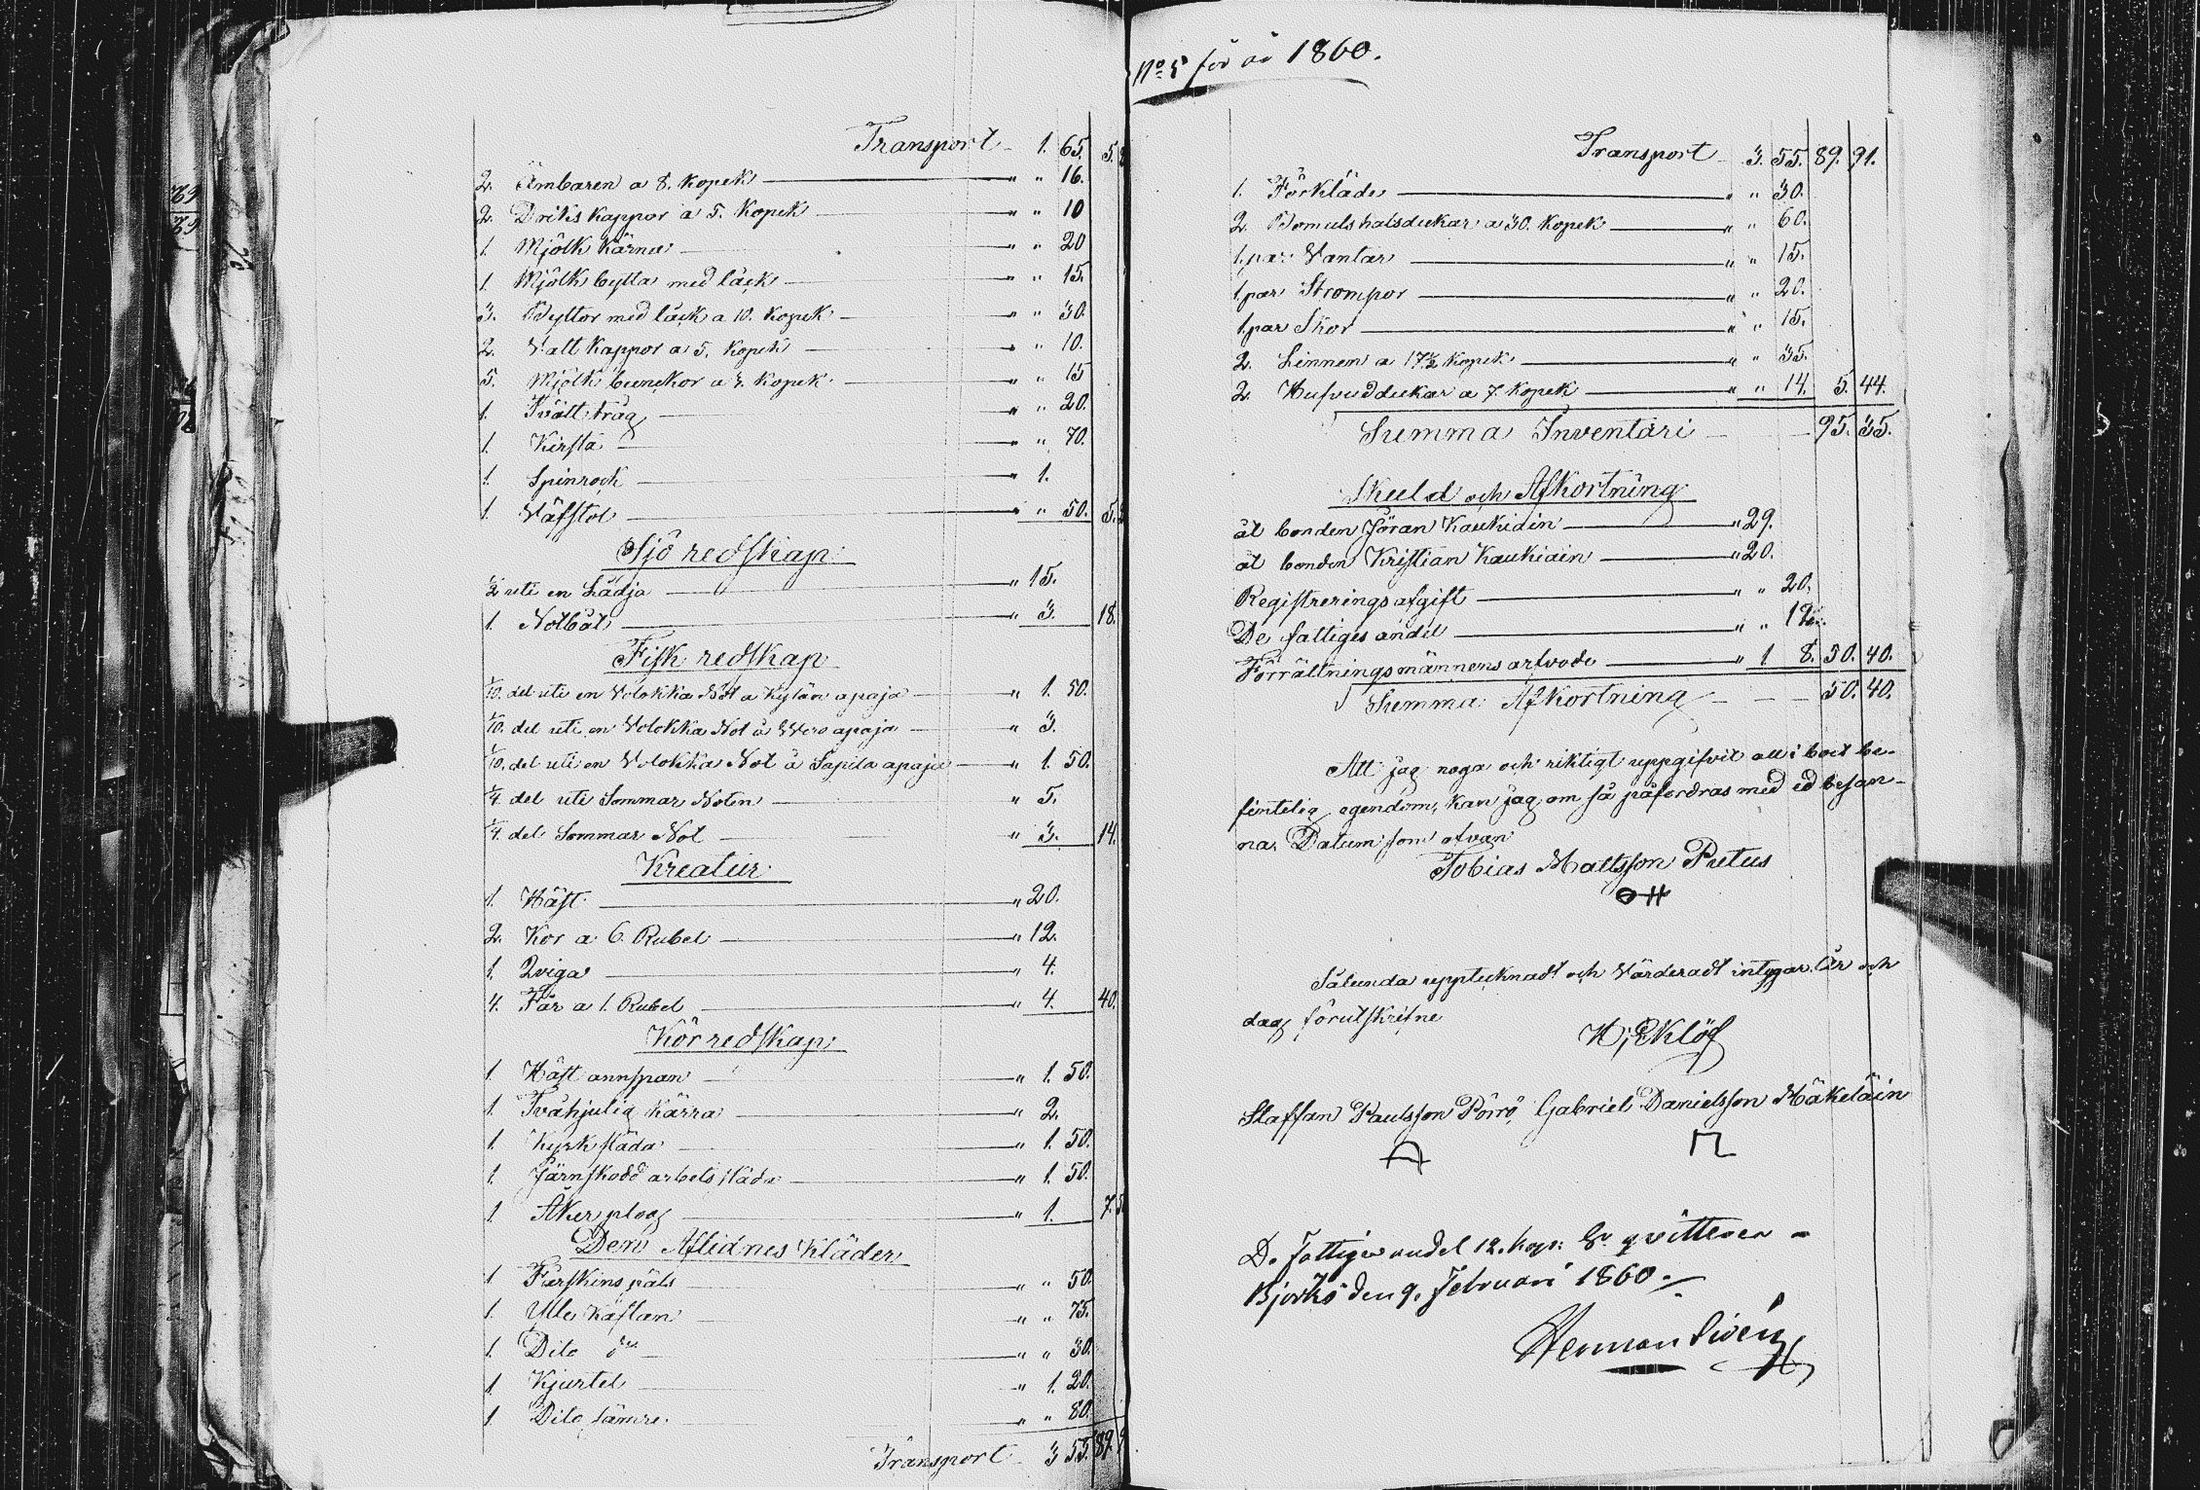 Transport 1. 65. 5.
2. Ämbaren a 8. Kopek " " 16.
2. Driks kappor a 5. Kopek " " 10
1. Mjölk Kärna " " 20
1. Mjölk bytta med läck " " 15.
3. Byttor med läck a 10. Kopek " " 30.
2. Vatt kappor a 5. Kopek " " 10.
5. Mjölk bunckor a 3. Kopek " " 15
1. Tvätt tråg " " 20.
1. Kirsta " " 70.
1. Spinrock " 1.
1. Väfstol " " 50. 5.
Sjö redskap
1/2 uti en Lådja " 15.
1. Notbåt " 3. 18.
Fisk redskap
1/10. del uti en Volokka Not a Kylän apaja " 1. 50.
1/10. del uti en Volokka Not a Wero apaja " 3.
1/10. del uti en Volokka Not a Sapila apaja " 1. 50.
1/4. del uti Sommar Noten " 5.
1/4. del Sommar Not " 3. 14.
Kreatur
1. Häst " 20.
2. Kor a 6. Rubel " 12.
1. Qviga " 4.
4. Får a 1. Rubel " 4. 40.
Körredskap
1. Häst annspan " 1. 50.
1. Tvåhjulig Kärra " 2.
1. Kyrk släda " 1. 50.
1. Järnskodd arbets släda " 1. 50.
1. Åker plog " 1. 7. 5
Den Aflidnes Kläder
1 Fårskins päls " " 50.
1. Ylle Kaftan " " 75.
1. Dito do " " 30.
1 Kjurtel " 1. 20.
1. Dito sämre " " 80.
Transport 3 55. 89. 9
No 5 för år 1860.
Transport 3. 55. 89. 91.
1. Förkläde " " 30.
2. Bomuls halsdukar a 30. Kopek " " 60.
1. par Vantar " " 15.
1. par Strompor " " 20.
1. par Skor " " 15.
2. Linnen a 17 1/2 Kopek " " 35.
2. Hufvuddukar a 7. Kopek " " 14. 5. 44.
Summa Inventari 95. 35.
Skuld och Afkortning
åt bonden Jöran Kaukiain " 29.
åt bonden Kristian Kaukiain " 20.
Registrerings afgift " " 20.
De fattiges andel " " 12.
Förrättningsmännens arfvode " 1 8. 50. 40.
Summa Afkortning 50. 40.
Att jag noga och riktigt uppgifvit all i boet be-
fintelig egendom, kan jag om så påfordras med ed besan-
na. Datum som ofvan
Tobias Mattsson Putus
Sålunda upptecknadt och Värderadt intygar år och
dag förutskrifne
H; Eklöf
Staffan Paulsson Pörrö Gabriel Danielsson Mäkeläin
De Fattiges andel 12. kop: Sr qvitteras
Björkö den 9. Februari 1860.
Herman Sivén